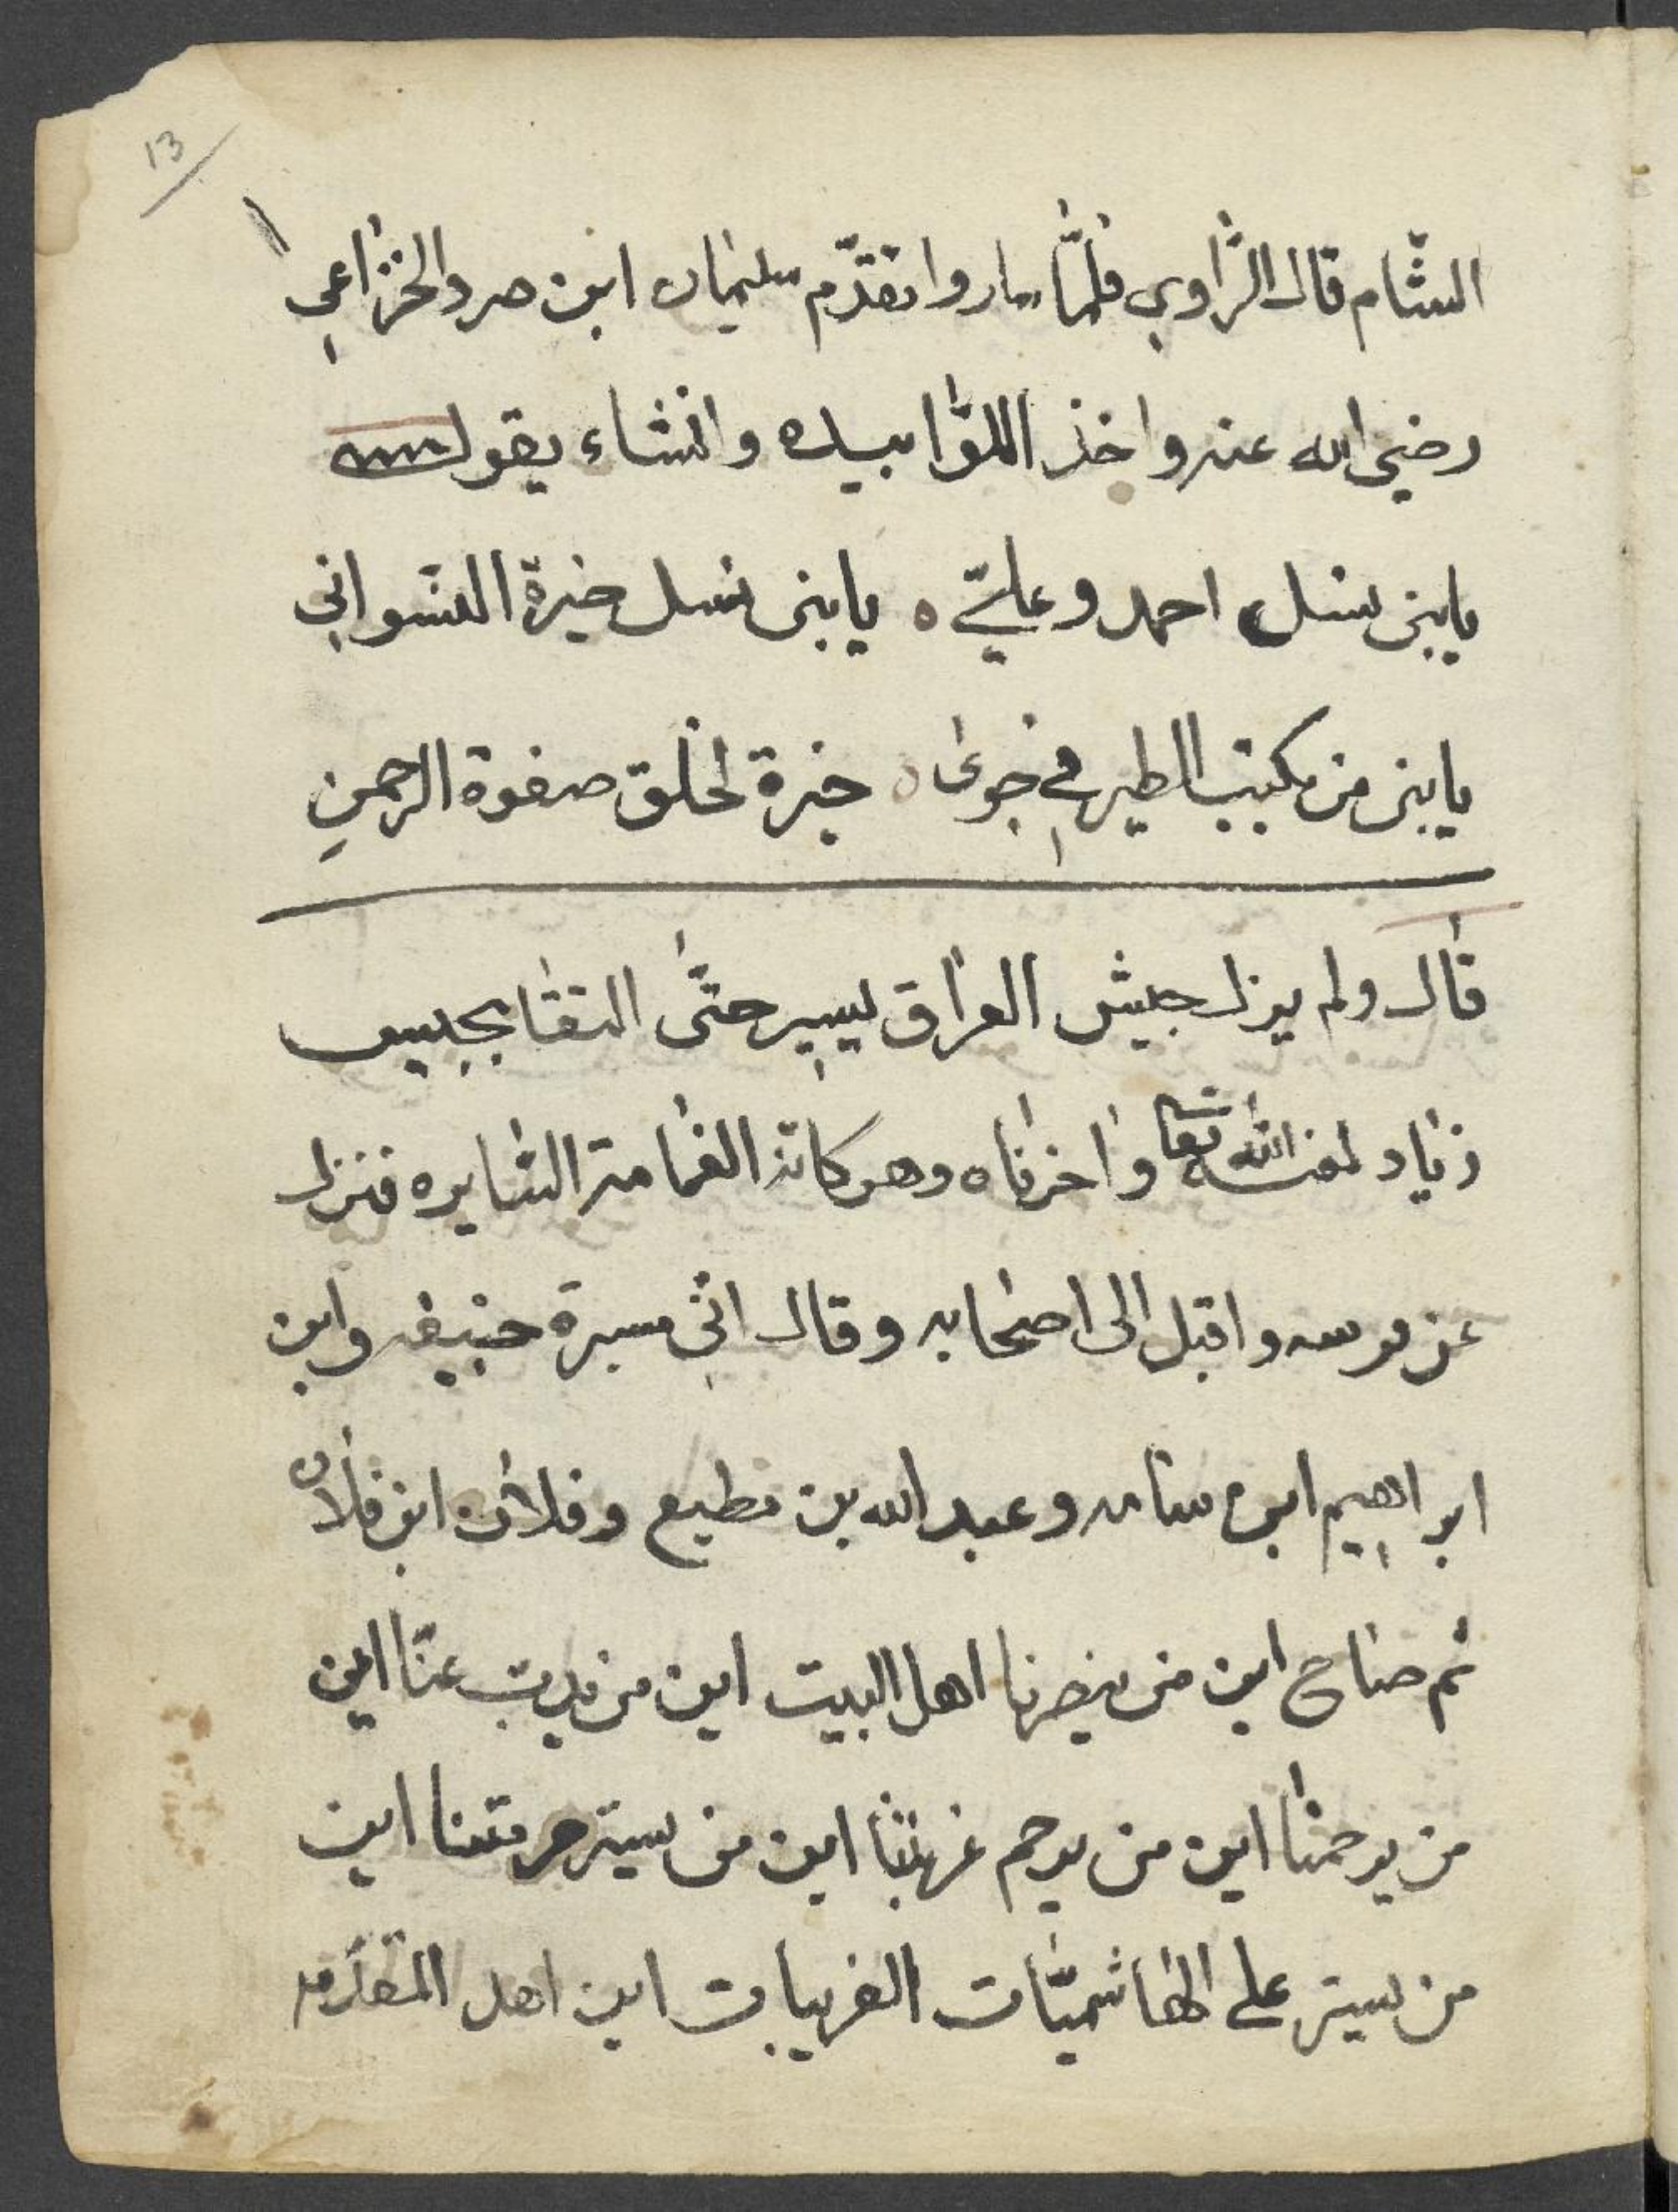 13
الشام قال الراوي فلمّا ساروا تقدّم سليمان ابن صرد الخزاعي
رضي الله عنه واخذ اللوّا بيده وانشاء يقول
يابنى نسل احمد وعليّ ه يابنى نسل خيرة النسواني
يابنى من الطير في خيرة الخلق صفوة الرحمن
قال ولم يزل جيش العراق يسير حتّى التقا بجيس
زياد لعنه الله تعا واخزاه وهو كانه الغمامة السايره فنزل
عن واقبل الى اصحابه وقال انّي وابن
ابراهيم ابن وعبد الله بن مطيع وفلان ابن فلان
ثم صاح اين من ينصرنا اهل البيت اين من يذب عنّا اين
من يرحمنا اين من يرحم غربتنا اين من يستر حرمتنا اين
من يستر على الهاشميّات الغريبات اين اهل المقدّمه